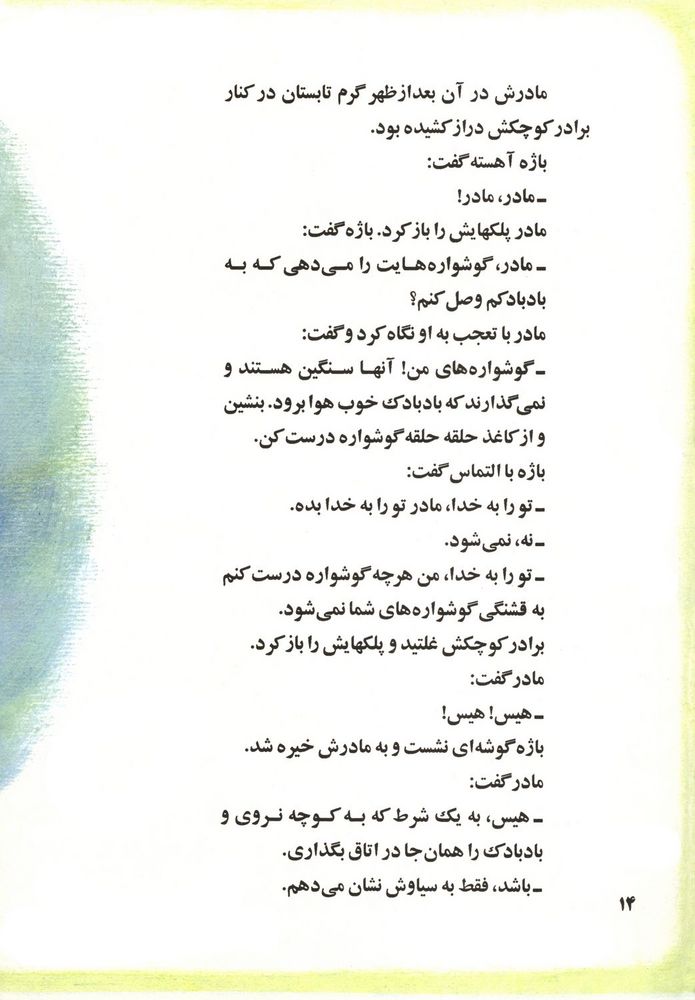 مادرش در آن بعدازظهر گرم تابستان در کنار
برادر کوچکش دراز کشیده بود.
باژه آهسته گفت:
ـ مادر، مادر!
مادر پلکهایش را باز کرد. باژه گفت:
ـ مادر، گوشواره‌هایت را می‌دهی که به
بادبادکم وصل کنم؟
مادر با تعجب به او نگاه کرد و گفت:
ـ گوشواره‌های من! آنها سنگین هستند و
نمی‌گذارند که بادبادک خوب هوا برود. بنشین
و از کاغذ حلقه حلقه گوشواره درست کن.
باژه با التماس گفت:
ـ تو را به خدا، مادر تو را به خدا بده.
ـ نه، نمی‌شود.
ـ تو را به خدا، من هرچه گوشواره درست کنم
به قشنگی گوشواره‌های شما نمی‌شود.
برادر کوچکش غلتید و پلکهایش را باز کرد.
مادر گفت:
ـ هیس! هیس!
باژه گوشه‌ای نشست و به مادرش خیره شد.
مادر گفت:
ـ هیس، به یک شرط که به کوچه نروی و
بادبادک را همان‌جا در اتاق بگذاری.
ـ باشد، فقط به سیاوش نشان می‌دهم.
۱۴